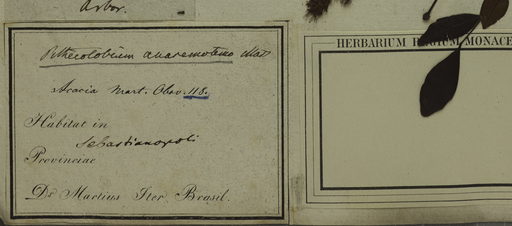 Arbor.
Pithecolobium avaremotemo Mart
Acacia Mart. Obs. 118.
Habitat in
Sebastianopoli
Provinciae
Dr Martius Iter Brasil.
HERBARIUM REGIUM MONACE